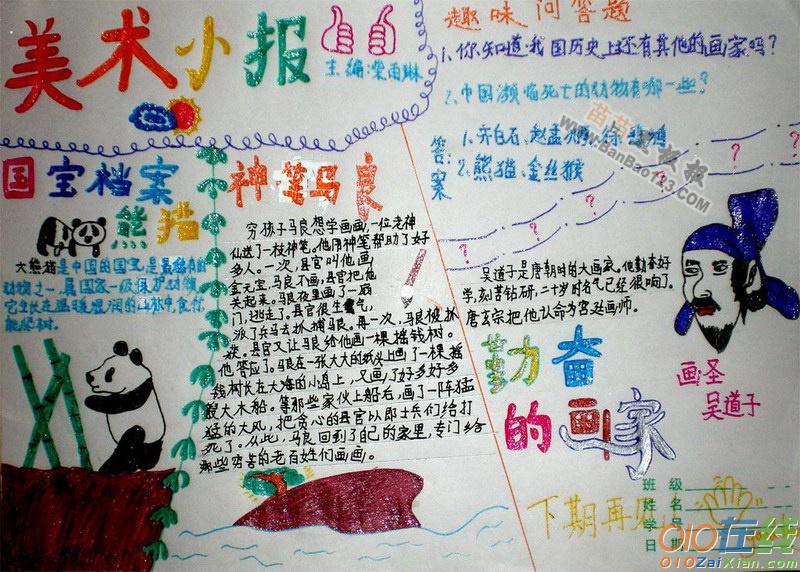 美术小报
主编:栾雨琳
趣味问答题
1、你知道我国历史上还有其他的画家吗?
2、中国濒临死亡的动物有哪一些?
答案
1、齐白石、赵孟
2、熊猫、金丝猴
www.BanBao123.com
国宝档案
熊猫
大熊猫是中国的国宝,是最稀有的
动物之一,属国家一级保护动物,
它生长在温暖湿润的山林中,食竹,
能爬树。
神笔马良
穷孩子马良想学画画,一位老神
仙送了一枝神笔。他用神笔帮助了好
多人。一次,县官叫他画
金元宝,马良不画,县官把他
关起来。马良夜里画了一扇
门,逃走了。县官很生气,
派了兵马去抓捕马良。再一次,马良被抓
获。县官又让马良给他画一棵摇钱树。
他答应了。马良在一张大大的纸头上画了一棵摇
钱树长在大海的小岛上,又画了好多好多
艘大木船。等那些家伙上船后,画了一阵猛
猛的大风,把贪心的县官以即士兵们给打
死了。从此,马良回到了自己的家里,专门给
那些穷苦的老百姓们画画。
吴道子是唐朝时的大画家。他勤奋好
学,刻苦钻研,二十岁时名气已经很响了。
唐玄宗把他认命为宫廷画师。
勤奋
的画家
画圣
吴道子
下期再见!
班级
姓名
学号
日期
010在线
010ZaiXian.com